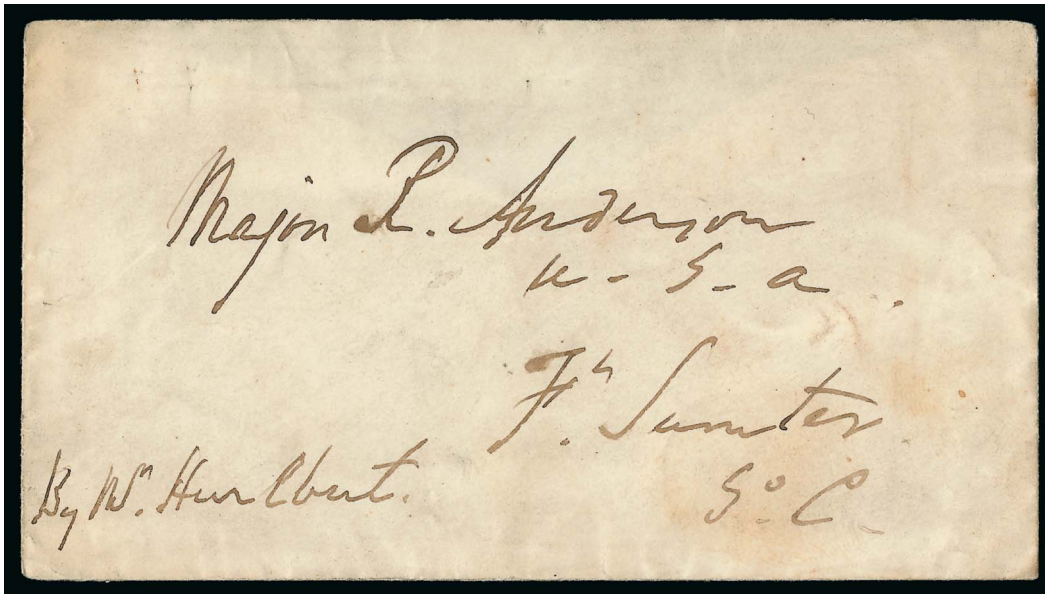 Major R. Anderson
U-S-A.
Ft. Sumter
By Mr. Hurlbut.
So. C.